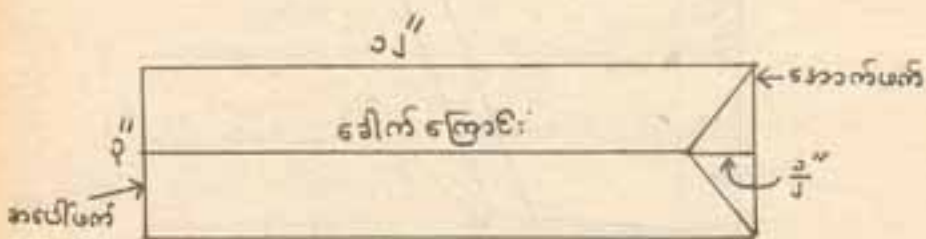 ၁၂"
အောက်ဖက်
ခေါက် ကြောင်း
၃"
၁/၂"
အပေါ်ဖက်